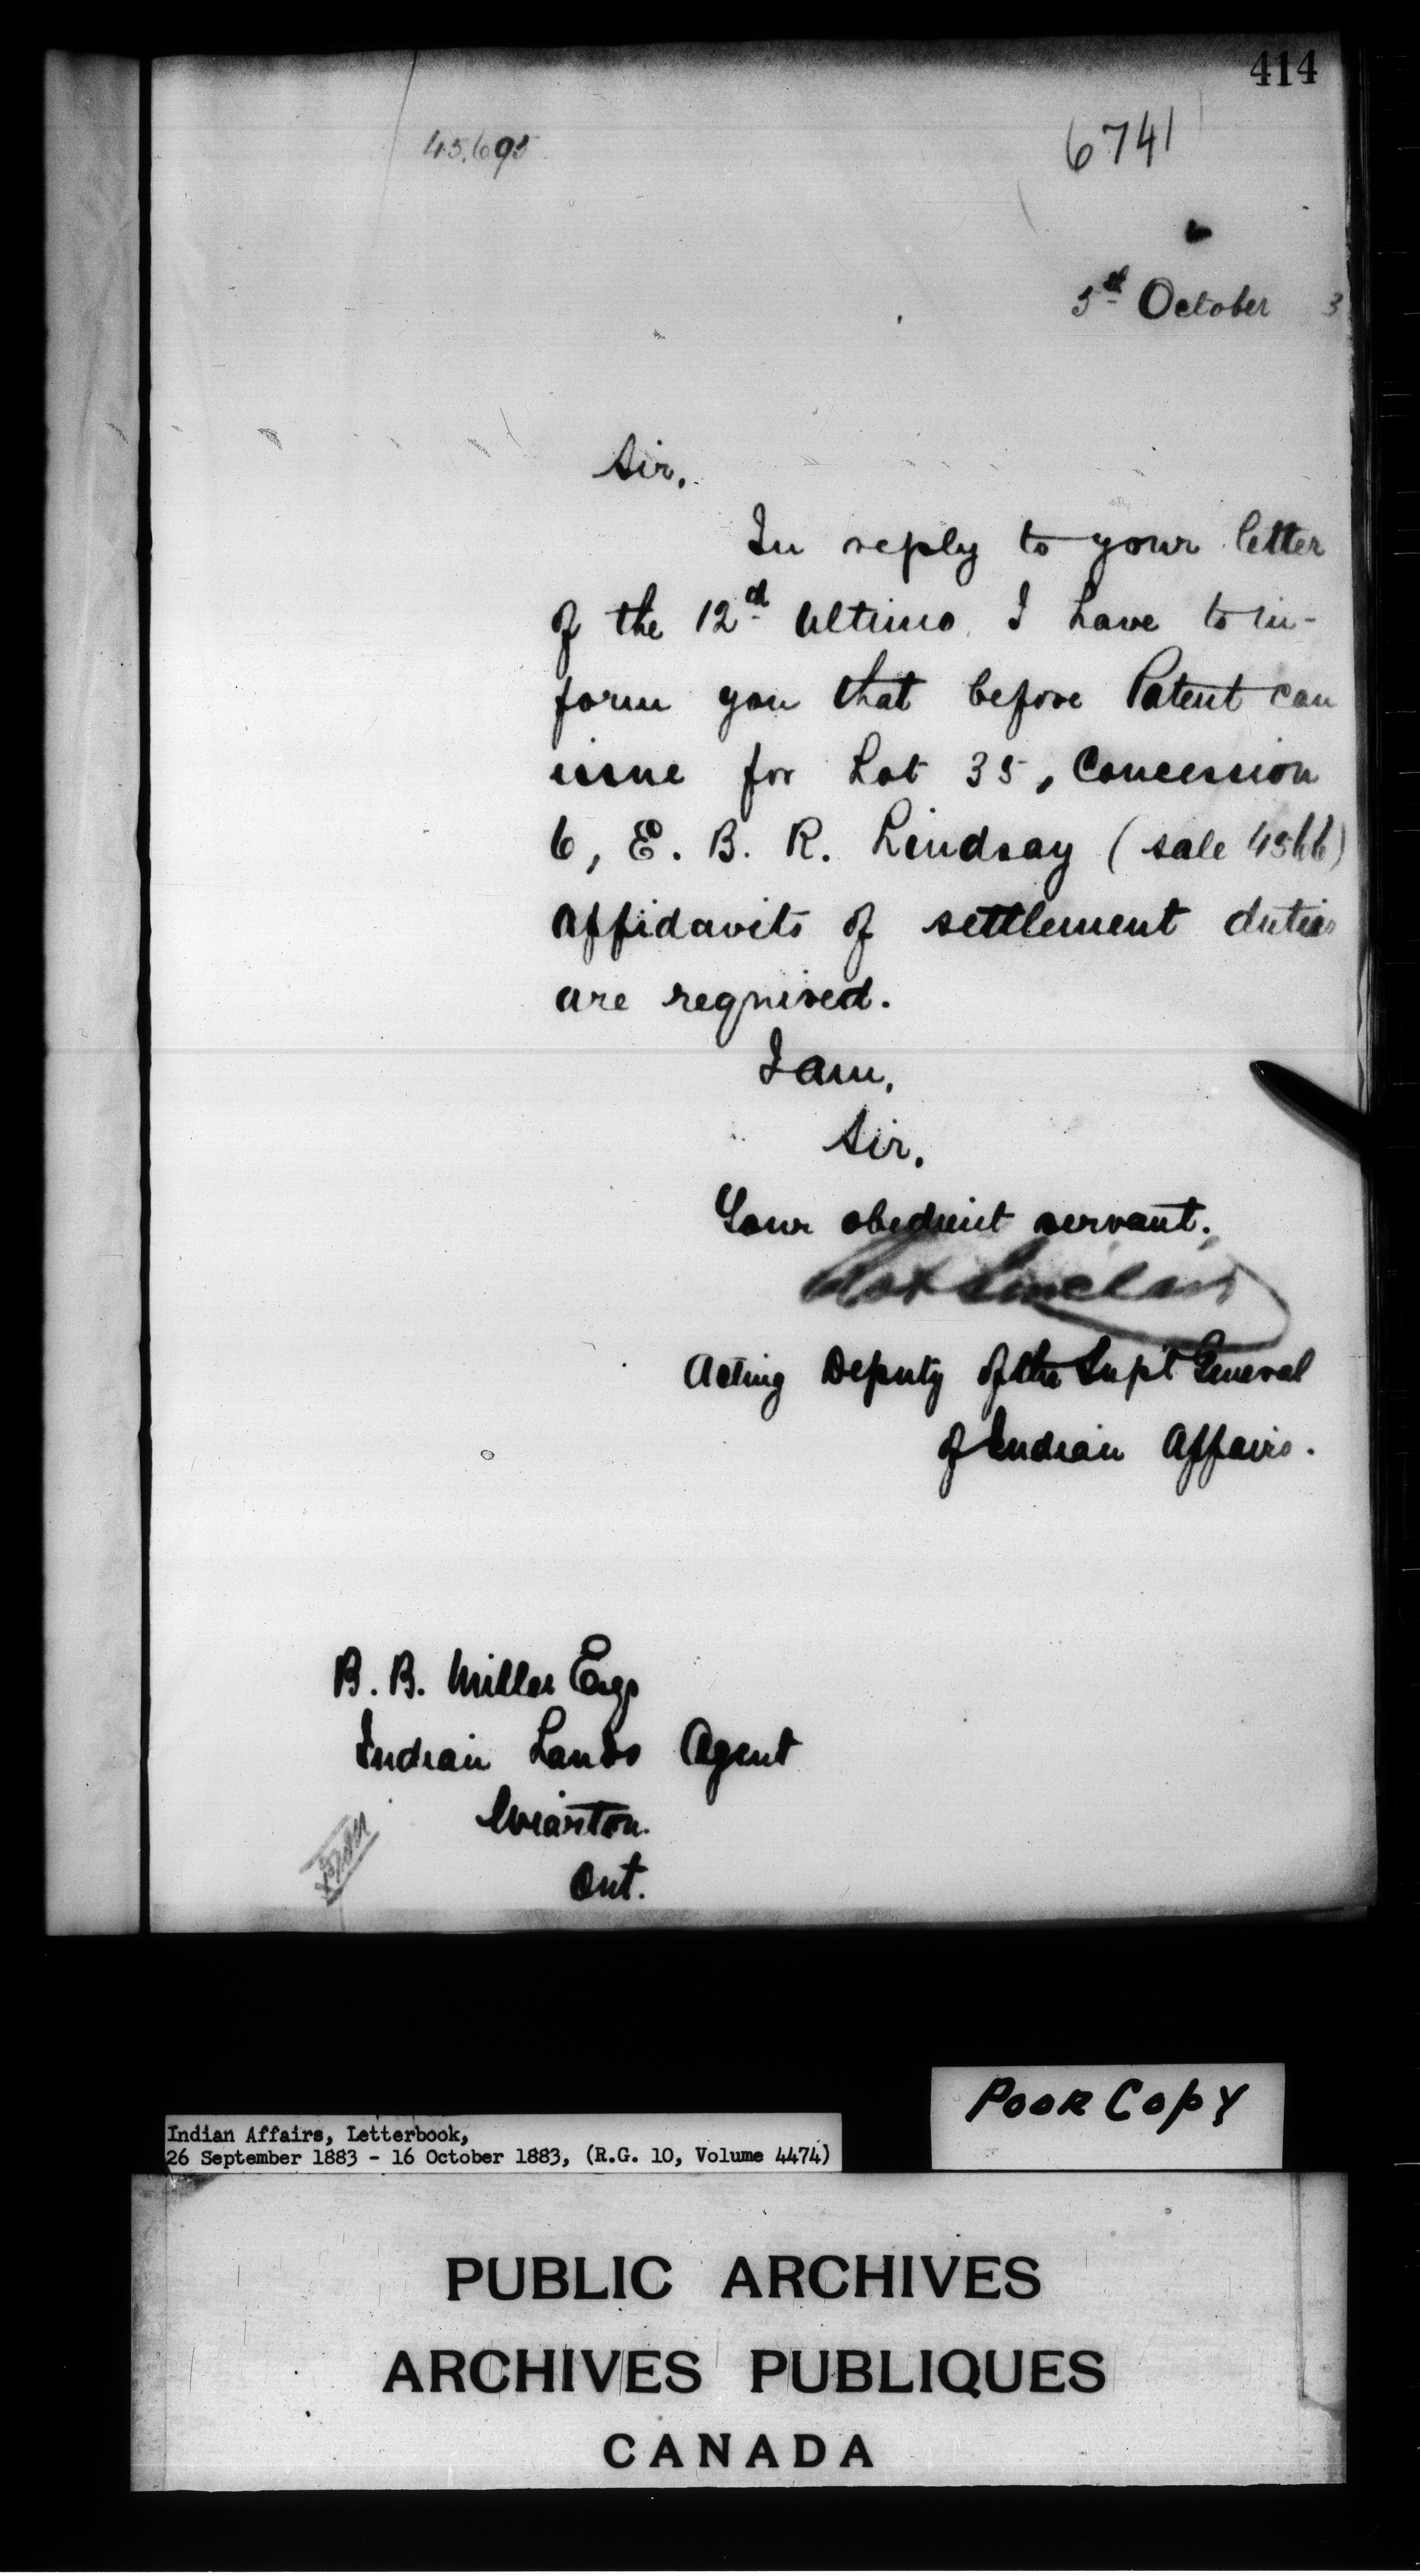 414
45,695
6741
October 3
Sir,
In reply to your letter
of the 12th Ultimo, I have to in-
form you that before Patent can
issue for Lot 35, Concession
6, E. B. R. Lindsay (sale 4566)
Affidavits of settlement duties
are required.
I am,
Sir,
Your obedient servant.
Sinclair
Acting Deputy of the Supt General
of Indian Affairs.
B. B. Miller Esqr
Indian Lands Agent
Wiarton.
Ont.
POOR COPY
Indian Affairs, Letterbook,
26 September 1883 - 16 October 1883, (R.G. 10, Volume 4474)
PUBLIC ARCHIVES
ARCHIVES PUBLIQUES
CANADA